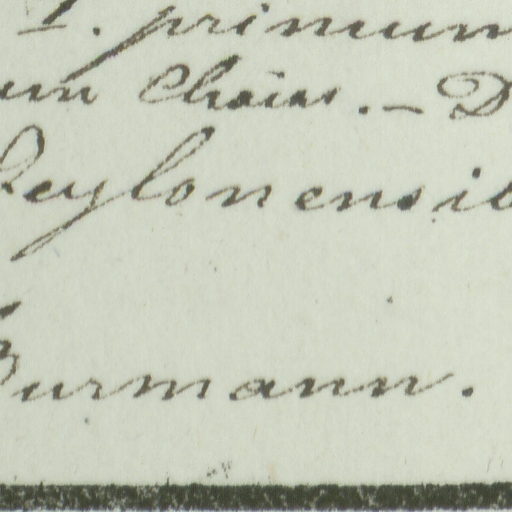 I. primum
um Chaus. – D
Zeylonensib
Burmann.